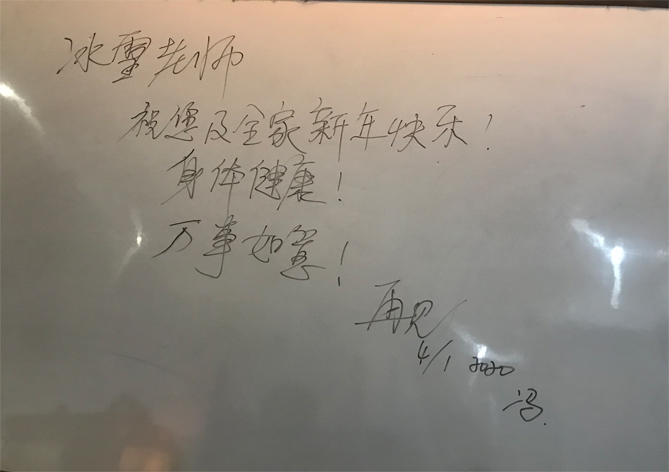 冰雪老师
祝您及全家新年快乐！
身体健康！
万事如意！
再见
4/1 2020
冯.